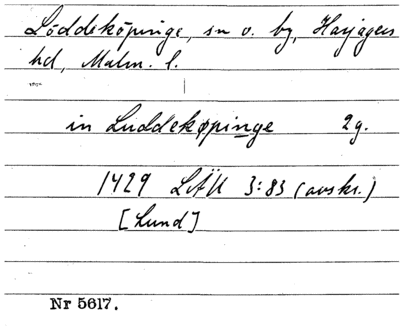 Löddeköpinge, sn o. by, Harjagers
hd, Malm. l.
in Luddekøpinge 2g.
1429 LÄU 3:83 (avskr.)
[Lund]
Nr 5617.